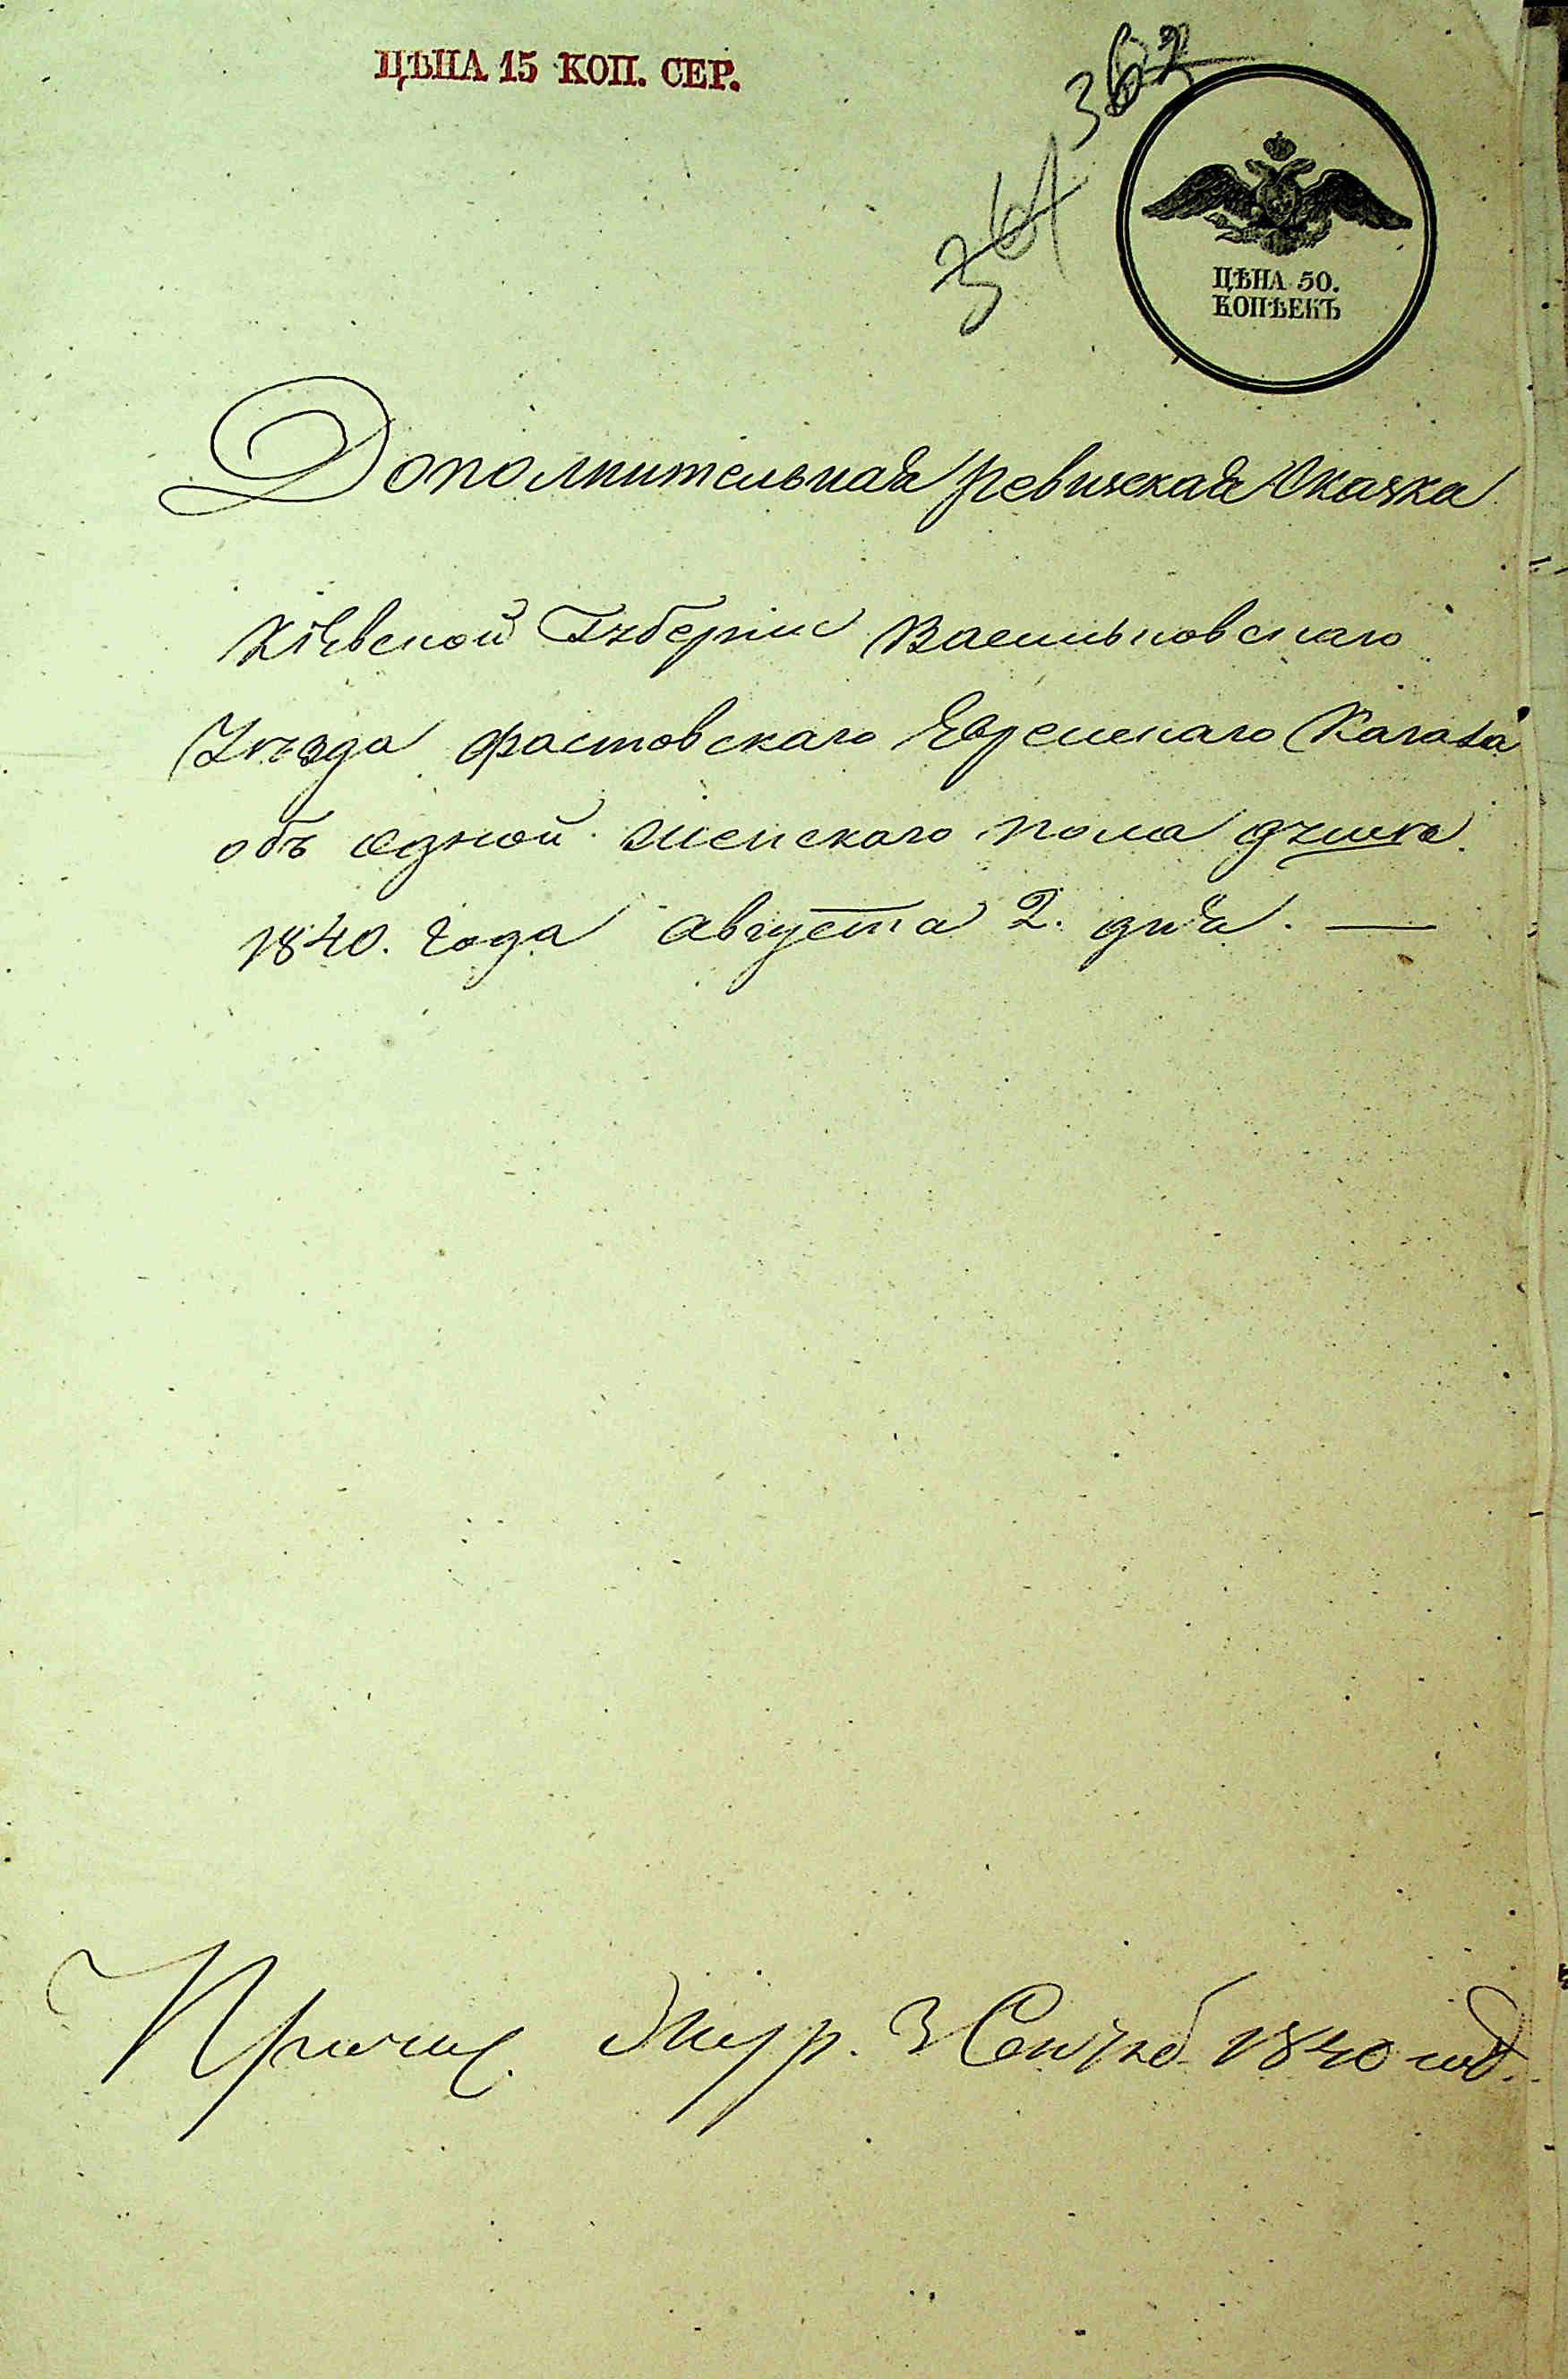 ЦѢНА 15 КОП. СЕР.
362
361
ЦѢНА 50.
КОПѢЕКЪ
Дополнительная ревизская Сказка
Кіевской Губерніи Васильковскаго
Уезда Фастовскаго Еврейскаго Кагала
объ одной женскаго пола душе.
1840. года августа 2. дня. —
3 Сентяб. 1840 год.